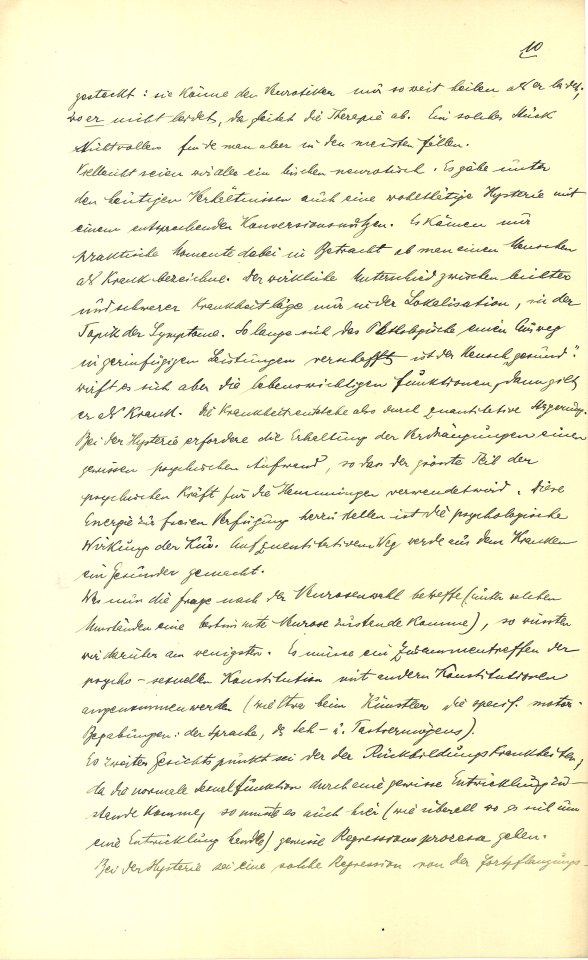 10
gesteckt: sie könne den Neurotiker nur so weit heilen als er leidet;
wo er nicht leidet, da gleitet die Therapie ab. Ein solches Stück
Nichtvollers finde man aber in den meisten Fällen.
Vielleicht seien wir alle ein bischen neurotisch. Es gäbe unter
den heutigen Verhältnissen auch eine wohltätige Hysterie mit
einem entsprechenden Konversionsnutzen. Es kämen nur
praktische Momente dabei in Betracht ob man einen Menschen
als Krank bezeichne. Der wirkliche Unterschied zwischen leichter
und schwerer Krankheit läge nur in der Lokalisation, in der
Topik der Symptome. So lange sich das Pathologische einen Ausweg
in geringfügigen Leistungen verschafft ist der Mensch „gesund“.
wirft es sich aber die lebenswichtigen Funktionen, dann gilt
er als Krank. Die Krankheit entstehe also durch quantitative Steigerung.
Bei der Hysterie erfordere die Erhaltung der Verdrängungen einen
gewissen psychischen Aufwand, so dass der grösste Teil der
psychischen Kräft für die Hemmungen verwendet wird. Diese
Energie zu freien Verfügung herzustellen ist die psychologische
Wirkung der Kur. Auf quantitativem Weg werde aus dem Kranken
ein Gesünder gemacht.
Was nun die Frage nach der Neurosenwahl betreffe (unter welchen
Umständen eine bestimmte Neurose zustande komme), so wüssten
wir darüber am wenigsten. Es müsse ein Zusammentreffen der
psycho-sexuellen Konstitution mit andern Konstitutionen
angenommen werden (wie etwa beim Künstler die specif. motor.
Begabungen: der Sprache, des Seh- u. Tastvermögens).
Ein zweiter Gesichtspunkt sei der der Rückbildungskrankheiten;
da die normale Sexualfunktion durch eine gewisse Entwicklung zu-
stande komme, so müsste es auch hier (wie überall wo es sich um
eine Entwicklung handle) gewisse Regressionsprocesse geben.
Bei der Hysterie sei eine solche Regression von der Fortpflanzungs-